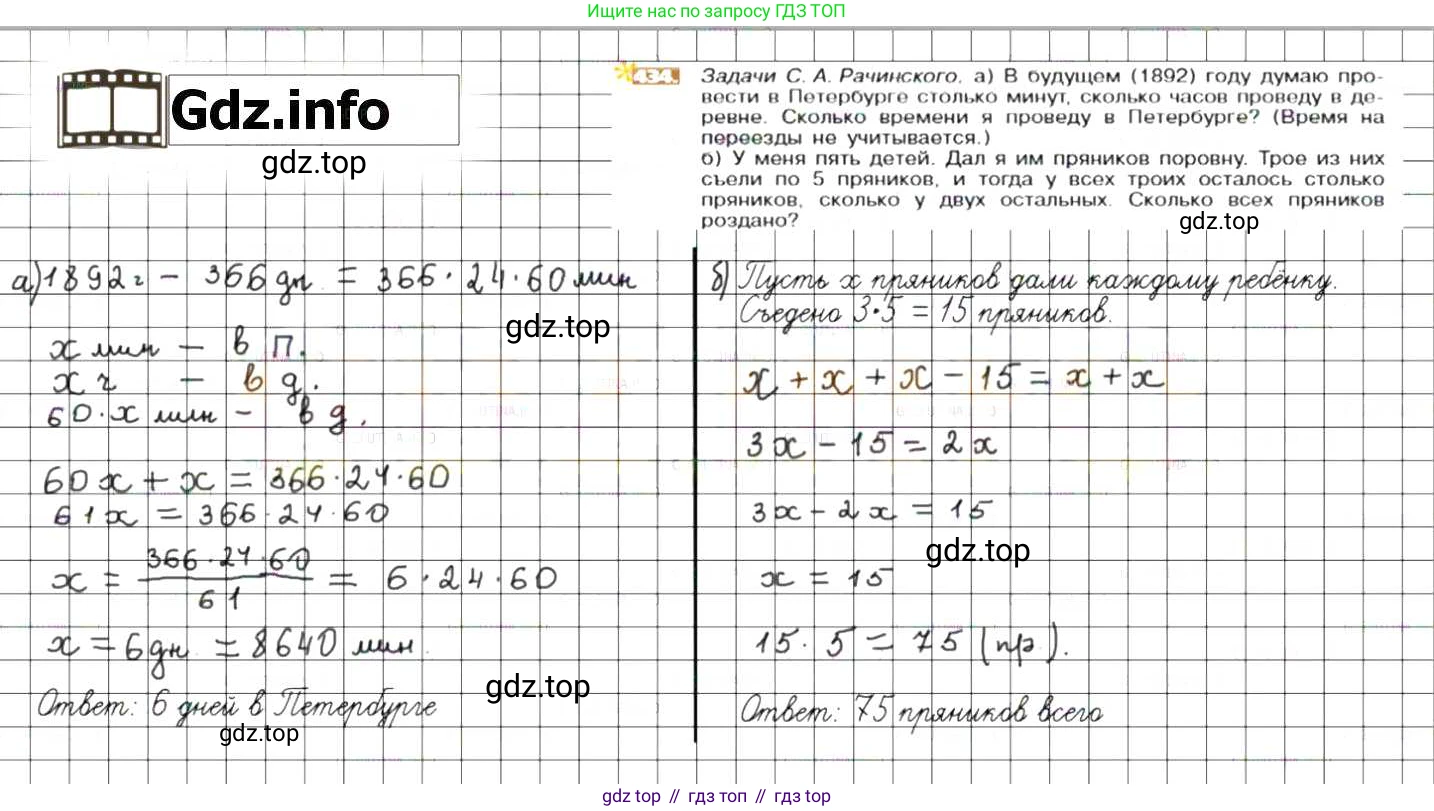 Ищите нас по запросу ГДЗ ТОП
Gdz.info
gdz.top
434. Задачи С. А. Рачинского. а) В будущем (1892) году думаю про-
вести в Петербурге столько минут, сколько часов проведу в де-
ревне. Сколько времени я проведу в Петербурге? (Время на
переезды не учитывается.)
б) У меня пять детей. Дал я им пряников поровну. Трое из них
съели по 5 пряников, и тогда у всех троих осталось столько
пряников, сколько у двух остальных. Сколько всех пряников
роздано?
gdz.top
а) 1892 г – 366 дн = 366 · 24 · 60 мин
gdz.top
х мин – в П.
х ч – в д.
60 · х мин – в д.
60х + х = 366 · 24 · 60
61х = 366 · 24 · 60
х = 366 · 24 · 60 / 61 = 6 · 24 · 60
х = 6 дн = 8640 мин.
gdz.top
Ответ: 6 дней в Петербурге
gdz.top
б) Пусть х пряников дали каждому ребёнку.
Съедено 3 · 5 = 15 пряников.
х + х + х – 15 = х + х
3х – 15 = 2х
3х – 2х = 15
gdz.top
х = 15
15 · 5 = 75 (пр.).
Ответ: 75 пряников всего
gdz top // гдз топ // гдз top